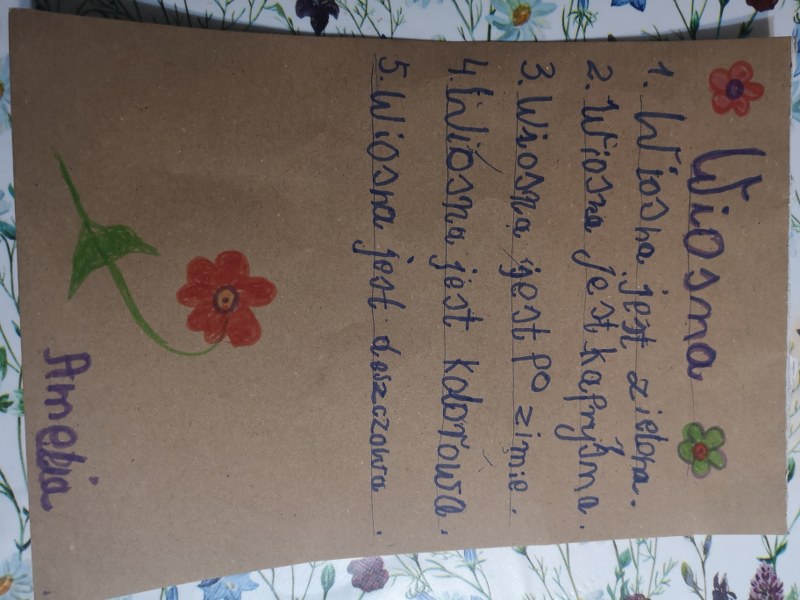 Wiosna
1. Wiosna jest zielona.
2. Wiosna jest kapryśna.
3. Wiosna jest po zimie.
4. Wiosna jest kolorowa.
5. Wiosna jest deszczowa.
Amelia